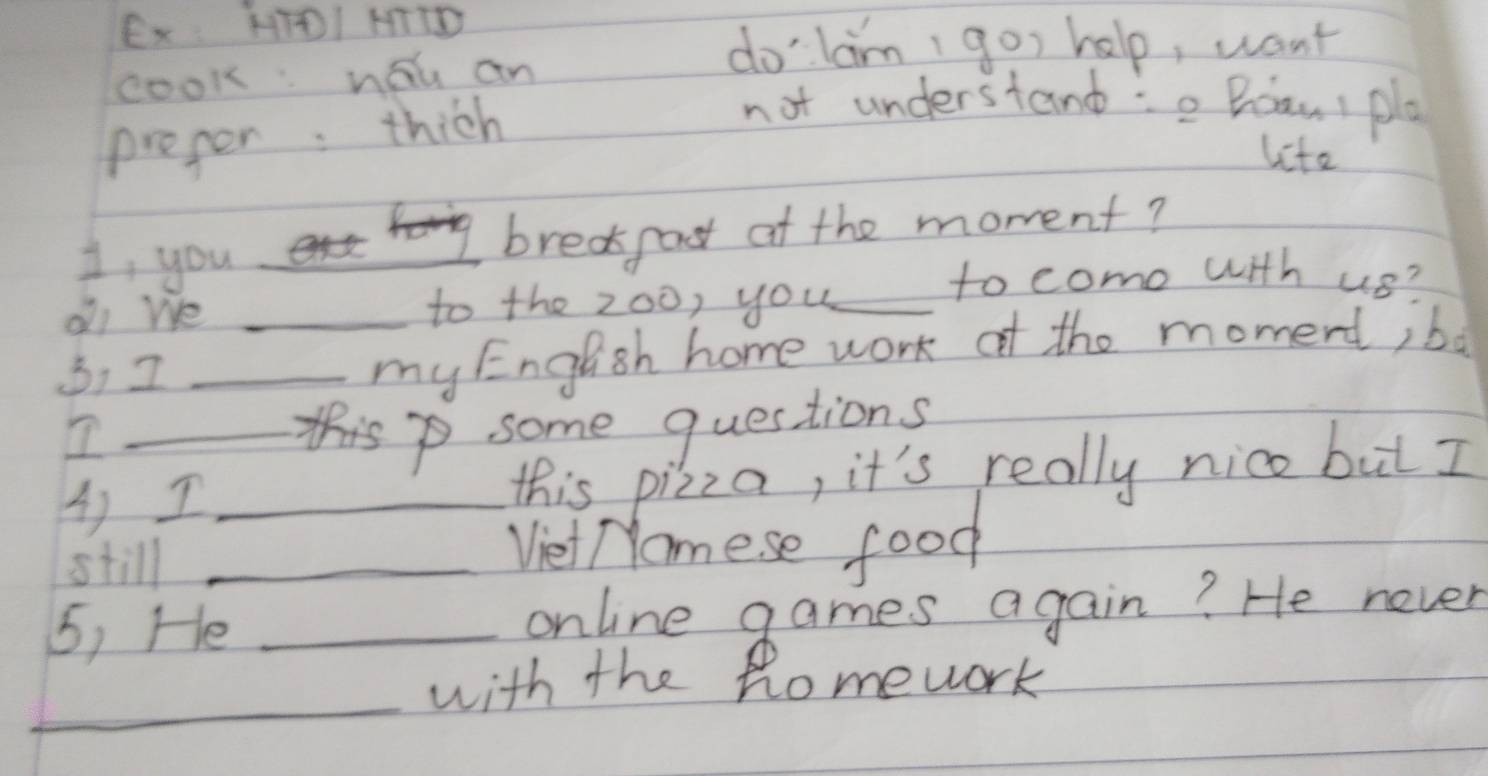 Ex: HTD / HTTD
cook: nấu ăn do: làm, go, help, want
prefer: thích not understand: o hiểu, pla
like
1, you breakfast at the moment?
2, We ____ to the zoo, you ____ to come with us?
3, I ____ my English home work at the moment, bu
I ____ this p some questions
4) I ____ this pizza, it's really nice but I
still ____ VietNamese food
5, He ____ online games again? He never
____ with the homework